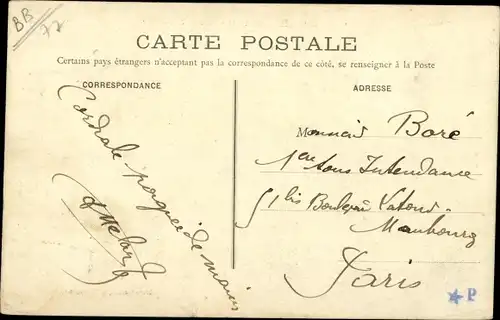 BB
77
CARTE POSTALE
Certains pays étrangers n'acceptant pas la correspondance de ce côté, se renseigner à la Poste
CORRESPONDANCE
Cordiale poignée de mains
ADRESSE
Monsieur Boré
Intendance
51 bis Boulevard Latour-
Maubourg
Paris
P